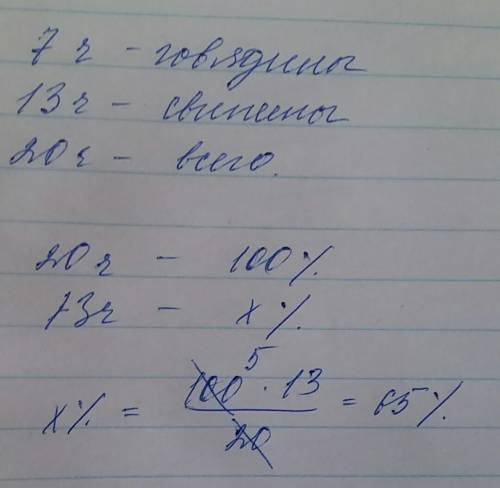 7 ч - говядины
13 ч - свинины
20 ч - всего.
20 ч - 100%
13 ч - x%
5
x% = 100 · 13 / 20 = 65%